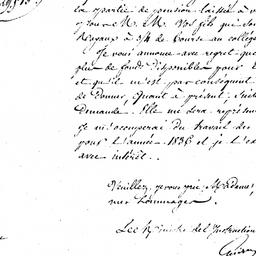 la portion de pension laissée à v
pour M. M. Vos fils qui so
Royaux à 3/4 de bourse au collèg
Je vous annonce avec regret que
plus de fonds disponibles pour
et qu'il m'est par conséquent
de donner, quant à présent, suite
demande. Elle me sera représen
Je m'occuperai du travail des
pour l'année 1836 et je l'ex
avec intérêt.
Veuillez, je vous prie, Madame,
mes hommages.
Le Ministre de l'Instruction